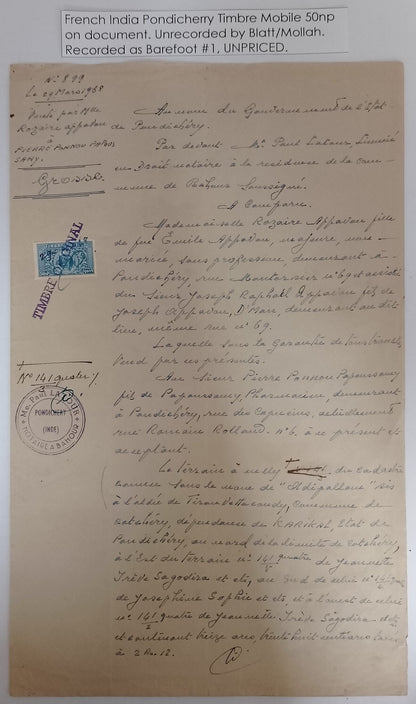 French India Pondicherry Timbre Mobile 50np
on document. Unrecorded by Blatt/Mollah.
Recorded as Barefoot #1, UNPRICED.
N° 899
Le 29 Mars 1968
Vente par Mlle
Rozaire Appavou
à
PIERRE PONNOU PAPOUS
SAMY.
GROSSE.
TIMBRE
N° 141 quater
Me. Paul LATOUR
PONDICHERY
(INDE)
NOTAIRE A BAHOUR
Au nom du Gouvernement de l'Etat
de Pondichéry.
Par devant Me Paul Latour, Licencié
en Droit notaire à la résidence de la com-
mune de Bahour Soussigné.
A Comparu.
Mademoiselle Rozaire Appavou fille
de feu Emile Appavou, majeure, non
mariée, sans profession demeurant à
Pondichéry, rue Montorsier n° 69 et assistée
du Sieur Joseph Raphaël Appavou fils de
Joseph Appavou, demeurant au dit
lieu, même rue n° 69.
Laquelle sous la garantie de tous troubles,
Vend par ces présentes.
Au Sieur Pierre Ponnou Papoussamy
fils de Papoussamy, Pharmacien, demeurant
à Pondichéry, rue des Capucins, actuellement
rue Romain Rolland n° 6, à ce présent et
acceptant.
Le terrain à nelly du cadastre
connu sous le nom de sis
à l'aldée de commune de
Cotchéry, dépendance de KARIKAL, Etat de
Pondichéry, au nord de la limite de Cotchéry,
à l'Est du terrain n° 141 quater de Jeannette
Irène Sagodira et cts, au Sud de celui n°
de Joséphine Sophie et cts, et à l'ouest de celui
n° 141 quater de Jeannette Irène Sagodira
et contenant treize ares, trente huit centiares
à 2